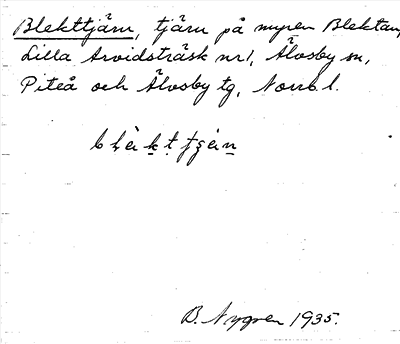 Blekttjärn, tjärn på myren Blektan,
Lilla Arvidsträsk nr 1, Älvsby sn,
Piteå och Älvsby tg, Norrb l.
B. Nygren 1935.